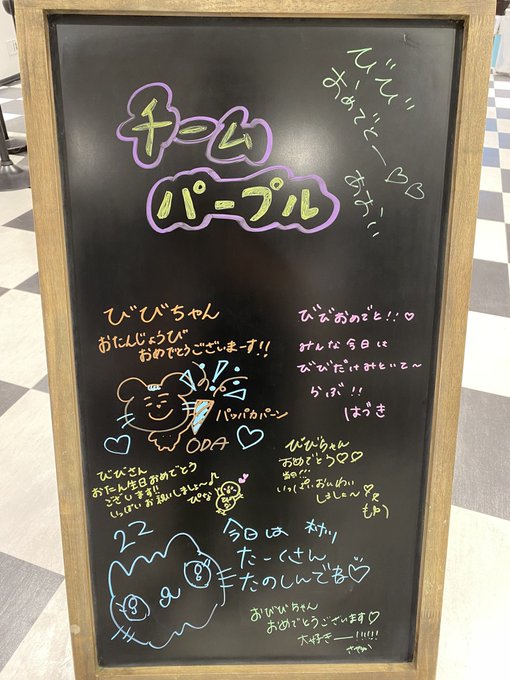 チーム
パープル
びび
おめでとー♡♡
あおい
びびちゃん
おたんじょうび
おめでとうございまーす!!
パッパカパーン
ODA
びびおめでと!!♡
みんな今日は
びびだけみといて〜
らぶ!!
はづき
びびさん
お誕生日おめでとう
ございます!!
いっぱいお祝いしましょ〜♪
ぴな
びびちゃん
おめでとう♡♡
いっぱいおいわい
しましょ〜♡
もゆ
22
今日は
たーくさん
たのしんでね♡
おびびちゃん
おめでとうございます♡
大好きー!!!!!